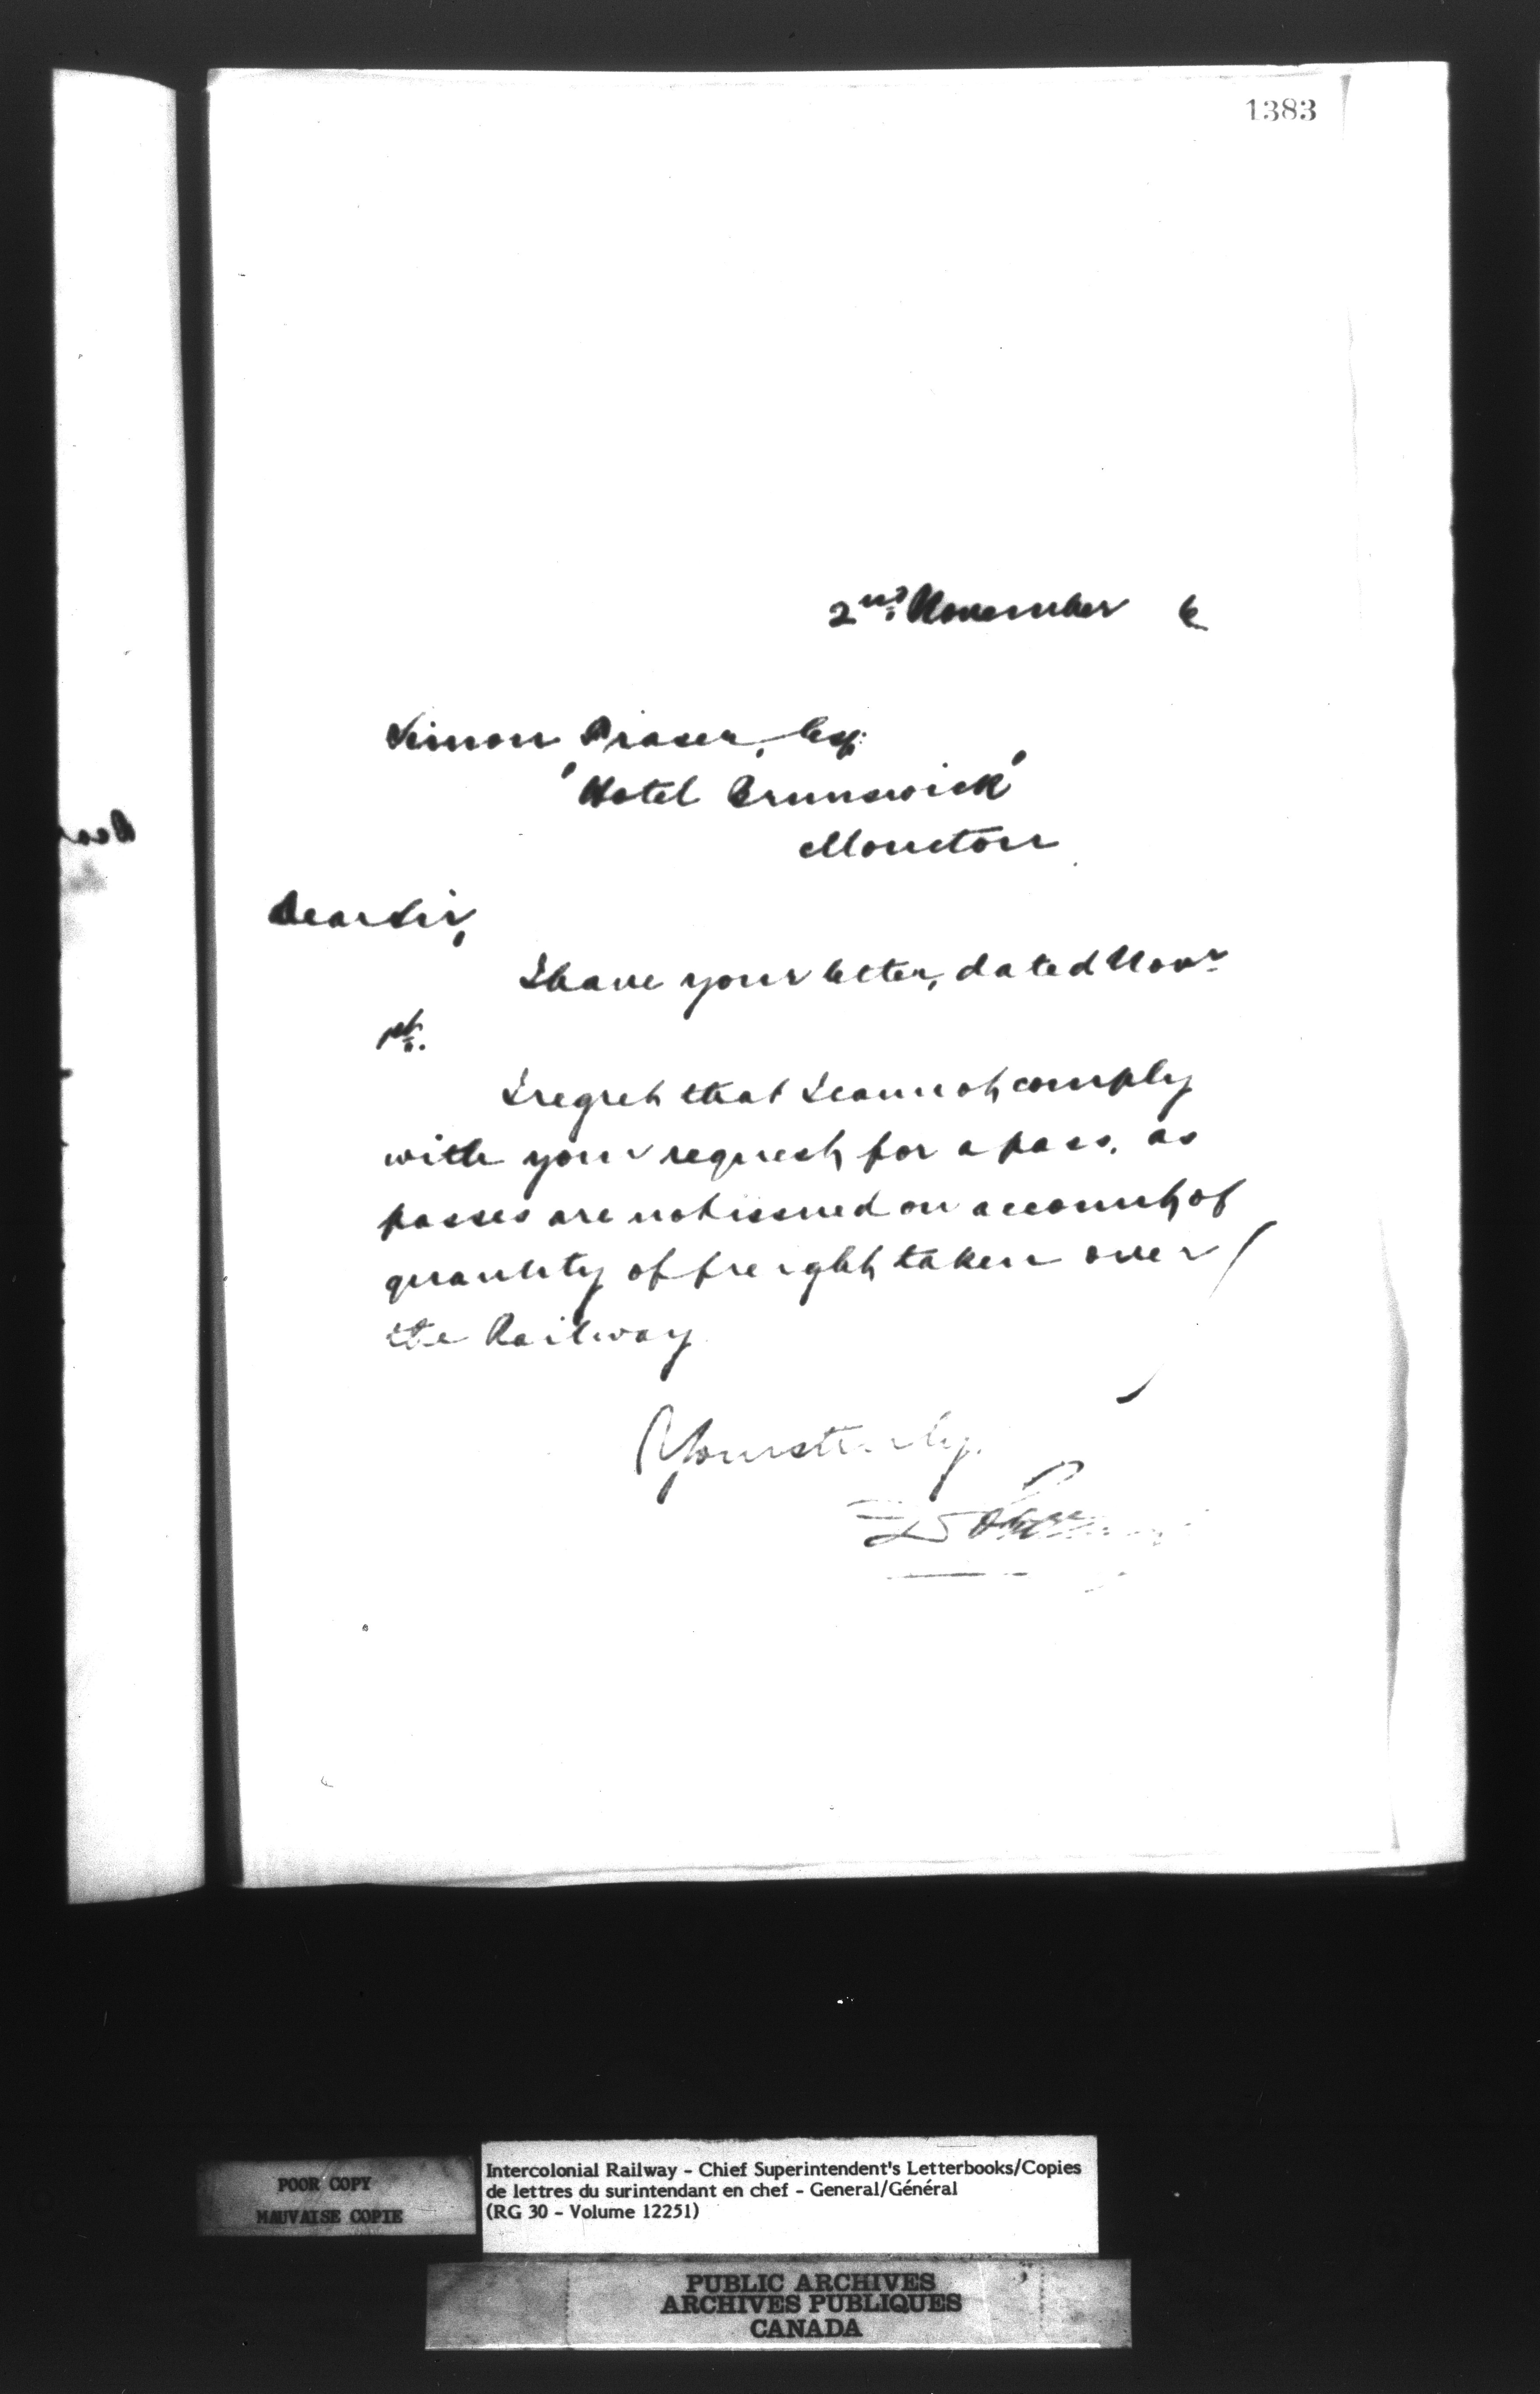 1383
2nd. November 6
Simon Fraser, Esq:
'Hotel Brunswick'
Moncton
Dear Sir,
I have your letter, dated Novr
1st.
I regret that I cannot comply
with your request for a pass, as
passes are not issued on account of
quantity of freight taken over
the Railway.
Yours truly,
POOR COPY
MAUVAISE COPIE
Intercolonial Railway - Chief Superintendent's Letterbooks/Copies
de lettres du surintendant en chef - General/Général
(RG 30 - Volume 12251)
PUBLIC ARCHIVES
ARCHIVES PUBLIQUES
CANADA